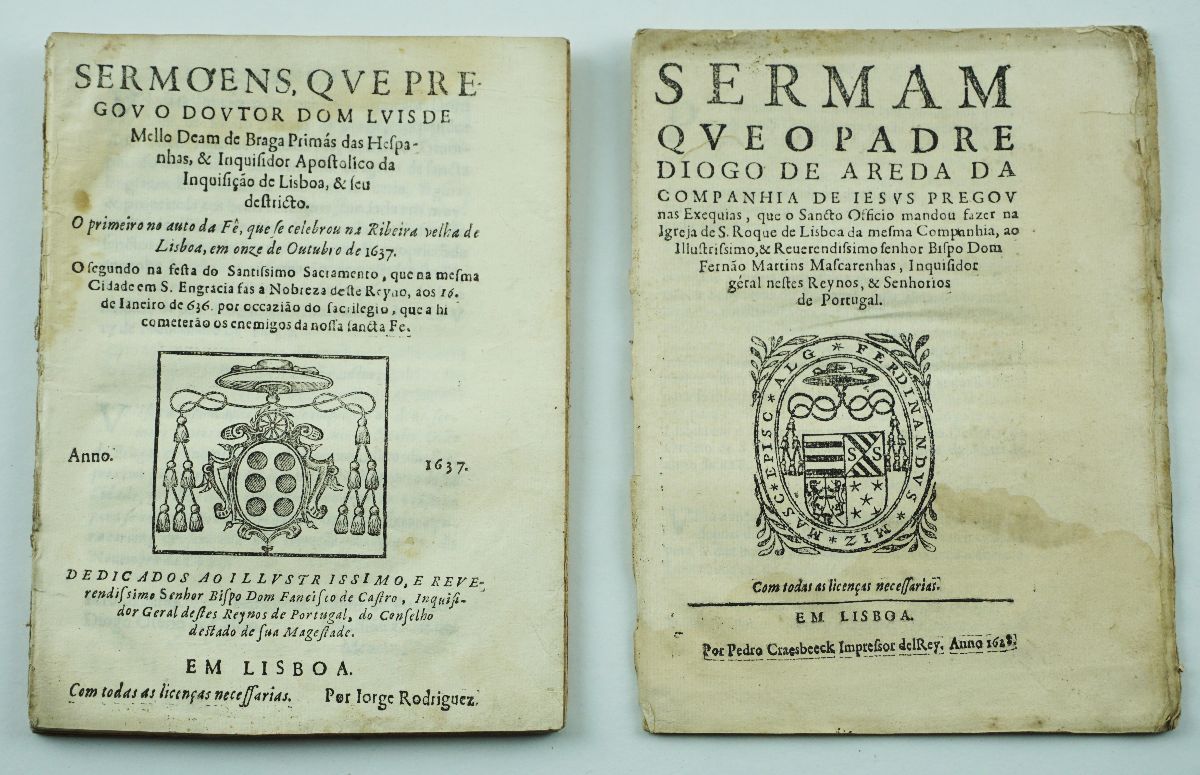 SERMOENS, QVE PRE-
GOV O DOVTOR DOM LVIS DE
Mello Deam de Braga Primás das Hespa-
nhas, & Inquisidor Apostolico da
Inquisição de Lisboa, & seu
destricto.
O primeiro no auto da Fê, que se celebrou na Ribeira velha de
Lisboa, em onze de Outubro de 1637.
O segundo na festa do Santissimo Sacramento, que na mesma
Cidade em S. Engracia fas a Nobreza deste Reyno, aos 16.
de Ianeiro de 636. por occazião do sacrilegio, que a hi
cometerão os enemigos da nossa sancta Fe.
Anno. 1637.
DEDICADOS AO ILLVSTRISSIMO, E REVE-
rendissimo Senhor Bispo Dom Fancisco de Castro, Inquisi-
dor Geral destes Reynos de Portugal, do Conselho
destado de sua Magestade.
EM LISBOA.
Com todas as licenças necessarias. Por Iorge Rodriguez.
SERMAM
QVE O PADRE
DIOGO DE AREDA DA
COMPANHIA DE IESVS PREGOV
nas Exequias, que o Sancto Officio mandou fazer na
Igreja de S. Roque de Lisboa da mesma Companhia, ao
Illustrissimo, & Reuerendissimo senhor Bispo Dom
Fernão Martins Mascarenhas, Inquisidor
géral nestes Reynos, & Senhorios
de Portugal.
FERDINANDVS * MIZ * MASC * EPISC * ALG *
S S
Com todas as licenças necessarias.
EM LISBOA.
Por Pedro Craesbeeck Impressor delRey. Anno 1628.